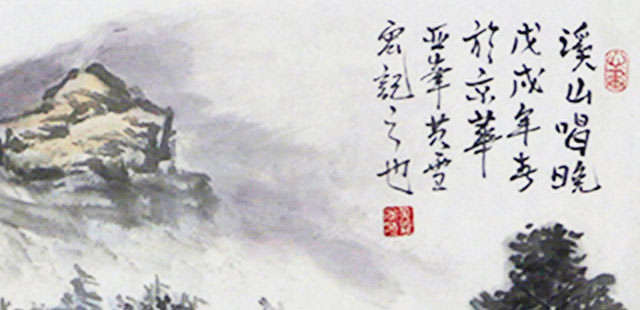 溪山唱晚
戊戌年春
於京華
亚峯黄雪
記之也